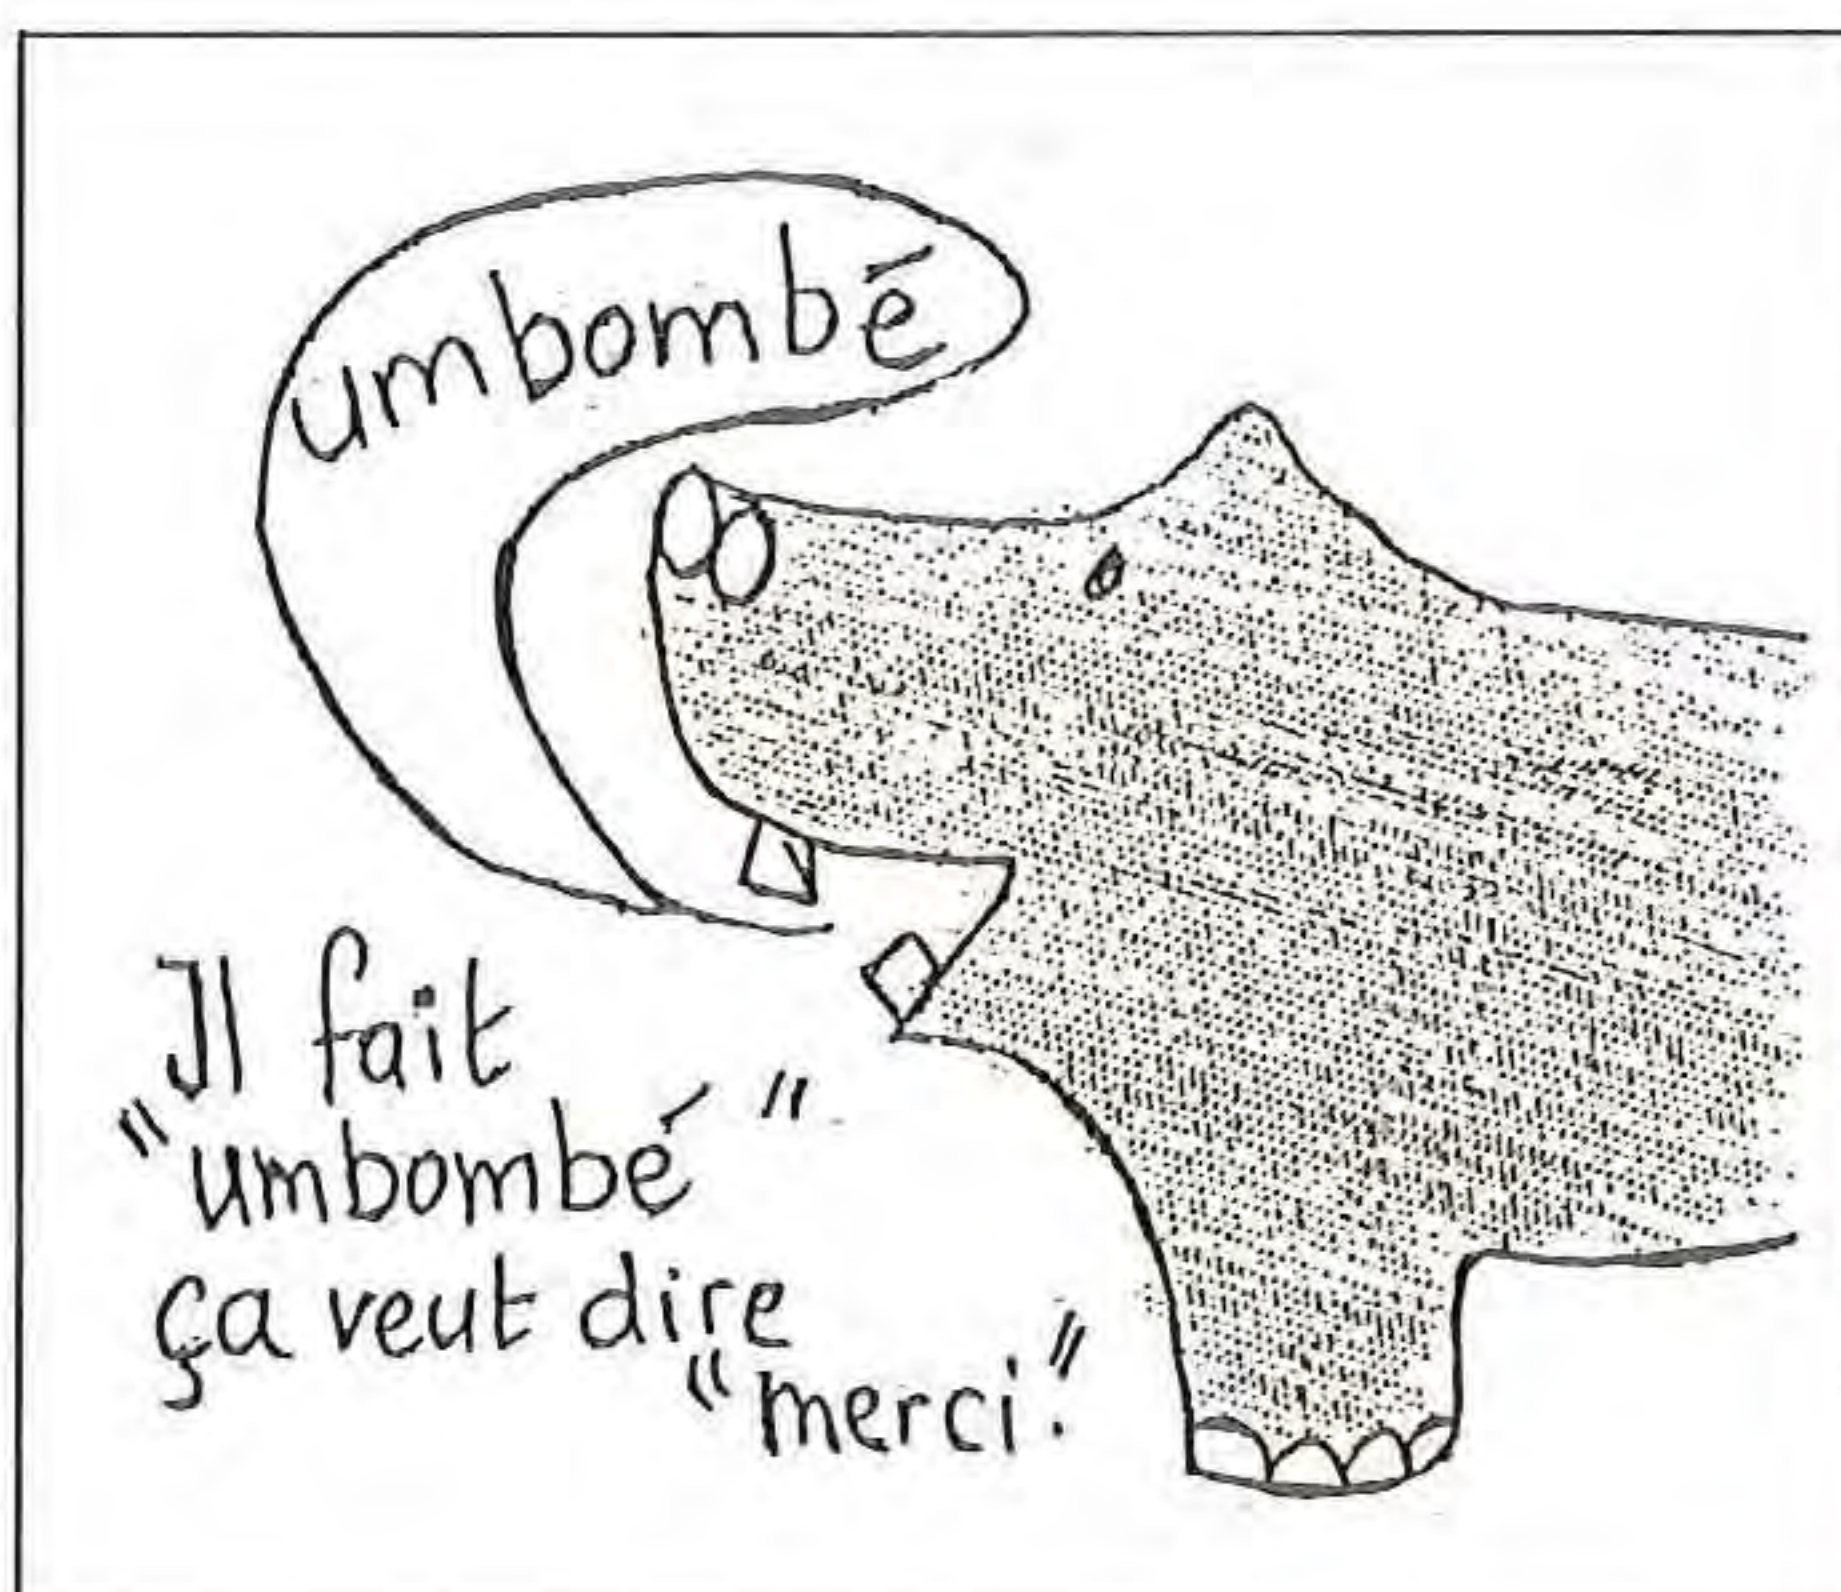 umbombé
Il fait
"umbombé"
ça veut dire
"merci."